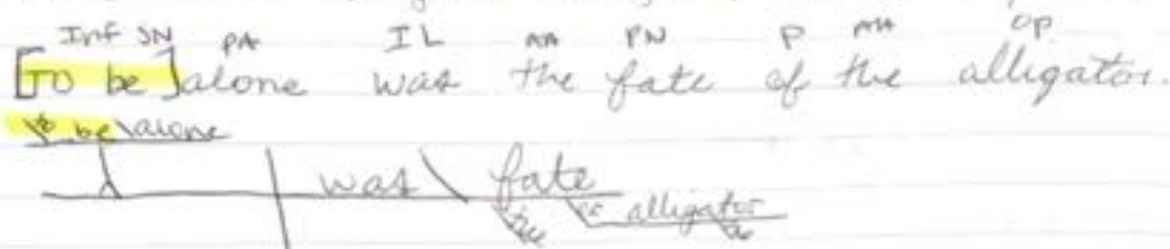 Inf SN PA IL AA PN P AA OP
[To be] alone was the fate of the alligator.
to be \ alone
was \ fate
the of alligator the